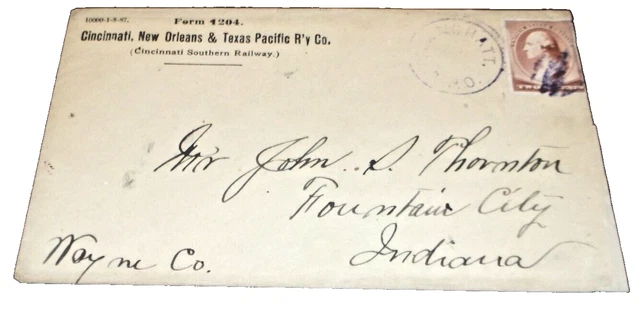 10000-1-8-87.
Form 1204.
Cincinnati, New Orleans & Texas Pacific R'y Co.
(Cincinnati Southern Railway.)
Mr John S. Thornton
Fountain City
Indiana
Wayne Co.